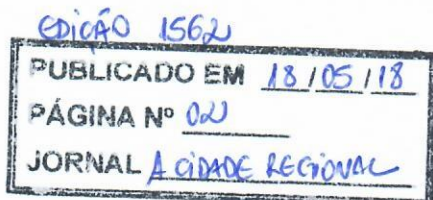 EDIÇÃO 1562
PUBLICADO EM 18/05/18
PÁGINA Nº 02
JORNAL A CIDADE REGIONAL